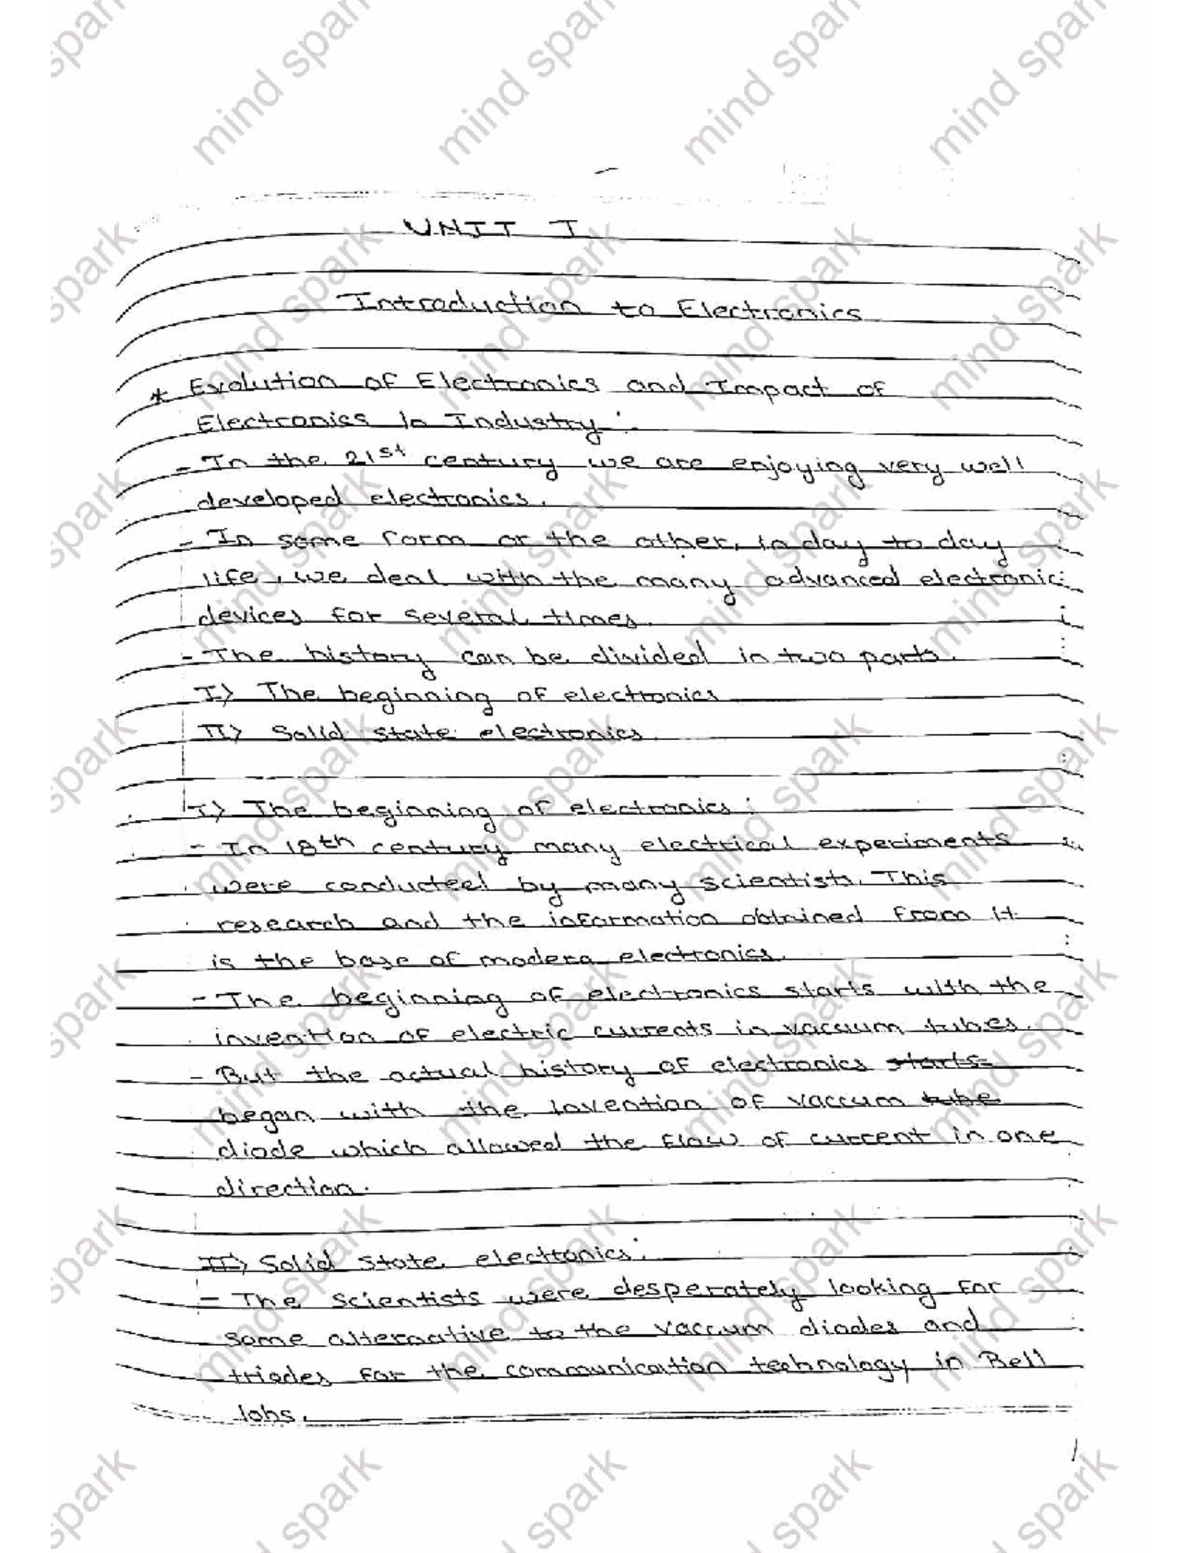 UNIT I
Introduction to Electronics
* Evolution of Electronics and Impact of
Electronics In Industry :
- In the 21st century we are enjoying very well
developed electronics.
- In some form or the other, in day to day
life, we deal with the many advanced electronic
devices for several times.
- The history can be divided in two parts.
I) The beginning of electronics
II) Solid state electronics.
I) The beginning of electronics :
- In 18th century many electrical experiments
were conducted by many scientists. This
research and the information obtained from it
is the base of modern electronics.
- The beginning of electronics starts with the
invention of electric currents in vaccum tubes.
- But the actual history of electronics starts
began with the invention of vaccum tube
diode which allowed the flow of current in one
direction.
II) Solid state electronics :
- The scientists were desperately looking for
some alternative to the vaccum diodes and
triodes for the communication technology in Bell
labs.
1
mind spark